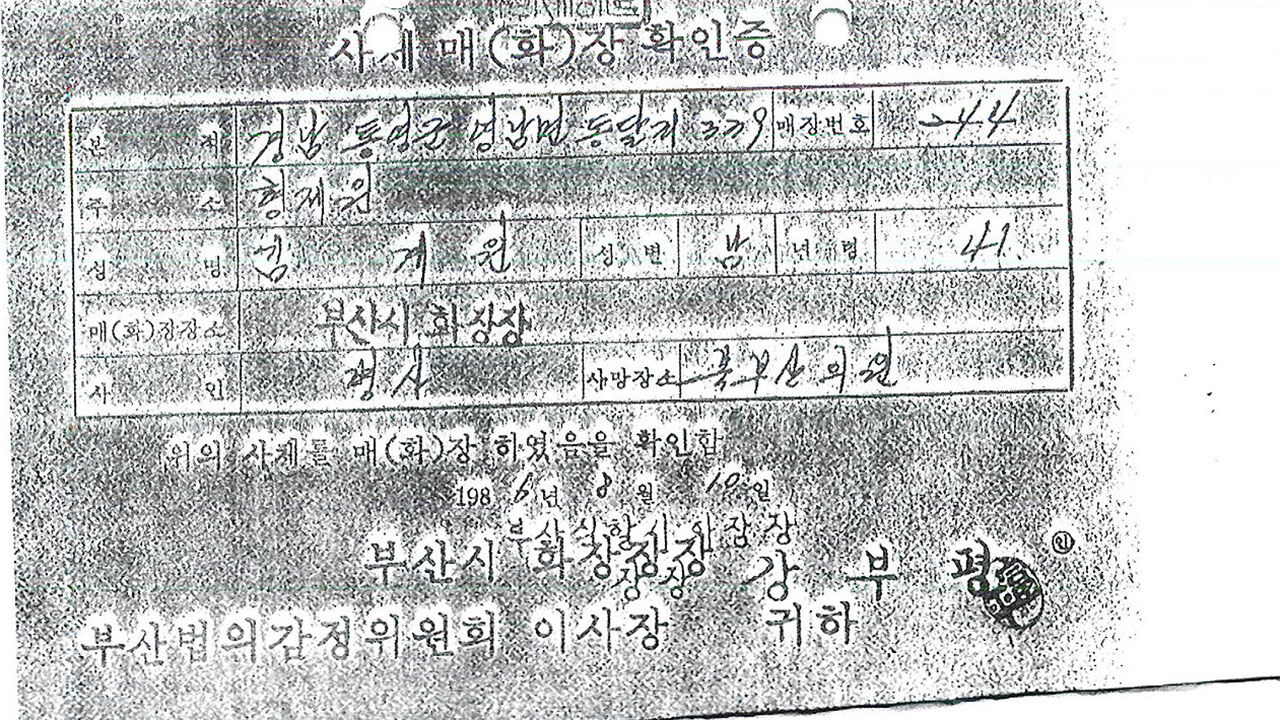 사체매(화)장확인증
본 적 경남 통영군 면 동달리 339 매장번호 -44
주 소 형제원
성 명 계 원 성 별 남 년 령 41.
매(화)장장소 부산시 화장장
사 인 병사 사망장소 북부산의원
위의 사체를 매(화)장 하였음을 확인함
198 6년 8월 10일
부산직할시 화장장
부산시 화장장장 강 부 평 ㊞
장장
부산법의감정위원회 이사장 귀하